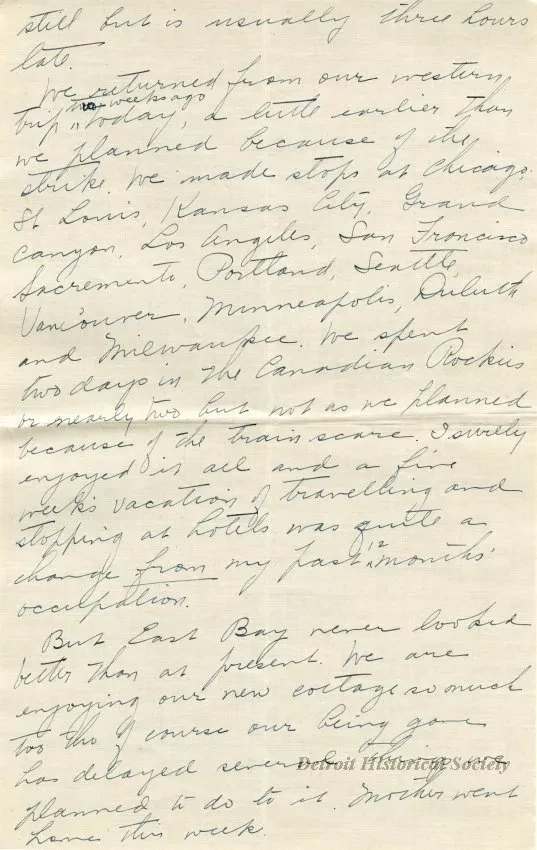 still but is usually three hours
late.
We returned from our western
two weeks ago
trip today, a little earlier than
we planned because of the
strike. We made stops at Chicago,
St Louis, Kansas City, Grand
Canyon, Los Angeles, San Francisco
Sacremento, Portland, Seattle,
Vancouver, Minneapolis, Duluth
and Milwaukee. We spent
two days in the Canadian Rockies
or nearly two but not as we planned
because of the train scare. I surely
enjoyed it all and a five
weeks vacation of travelling and
stopping at hotels was quite a
change from my past 12 months'
occupation.
But East Bay never looked
better than at present. We are
enjoying our new cottage so much
too tho of course our being gone
has delayed several things we
Detroit Historical Society
planned to do to it. Mother went
home this week.